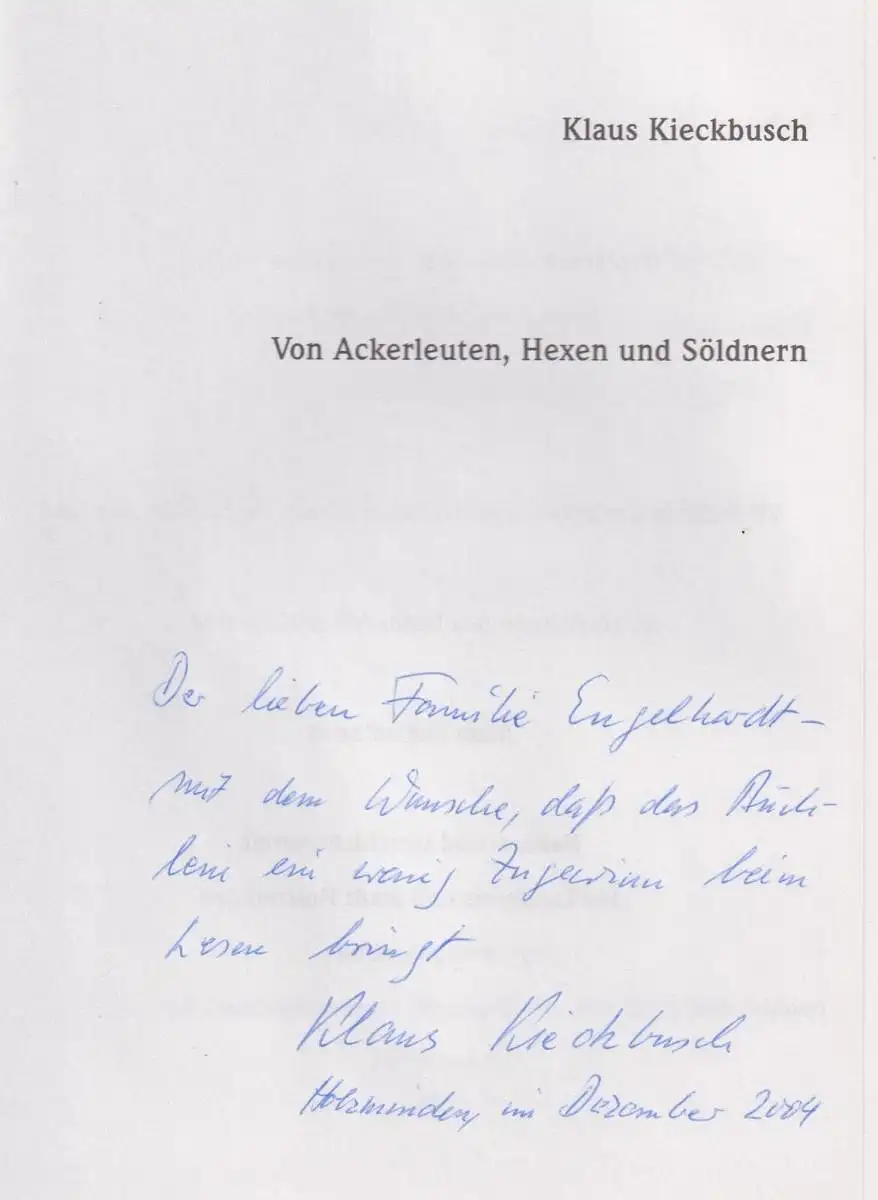 Klaus Kieckbusch
Von Ackerleuten, Hexen und Söldnern
Der lieben Familie Engelhardt –
mit dem Wunsche, daß das Büch-
lein ein wenig Zugewinn beim
Lesen bringt
Klaus Kieckbusch
Holzminden, im Dezember 2004